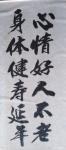 心情好人不老
身体健寿延年